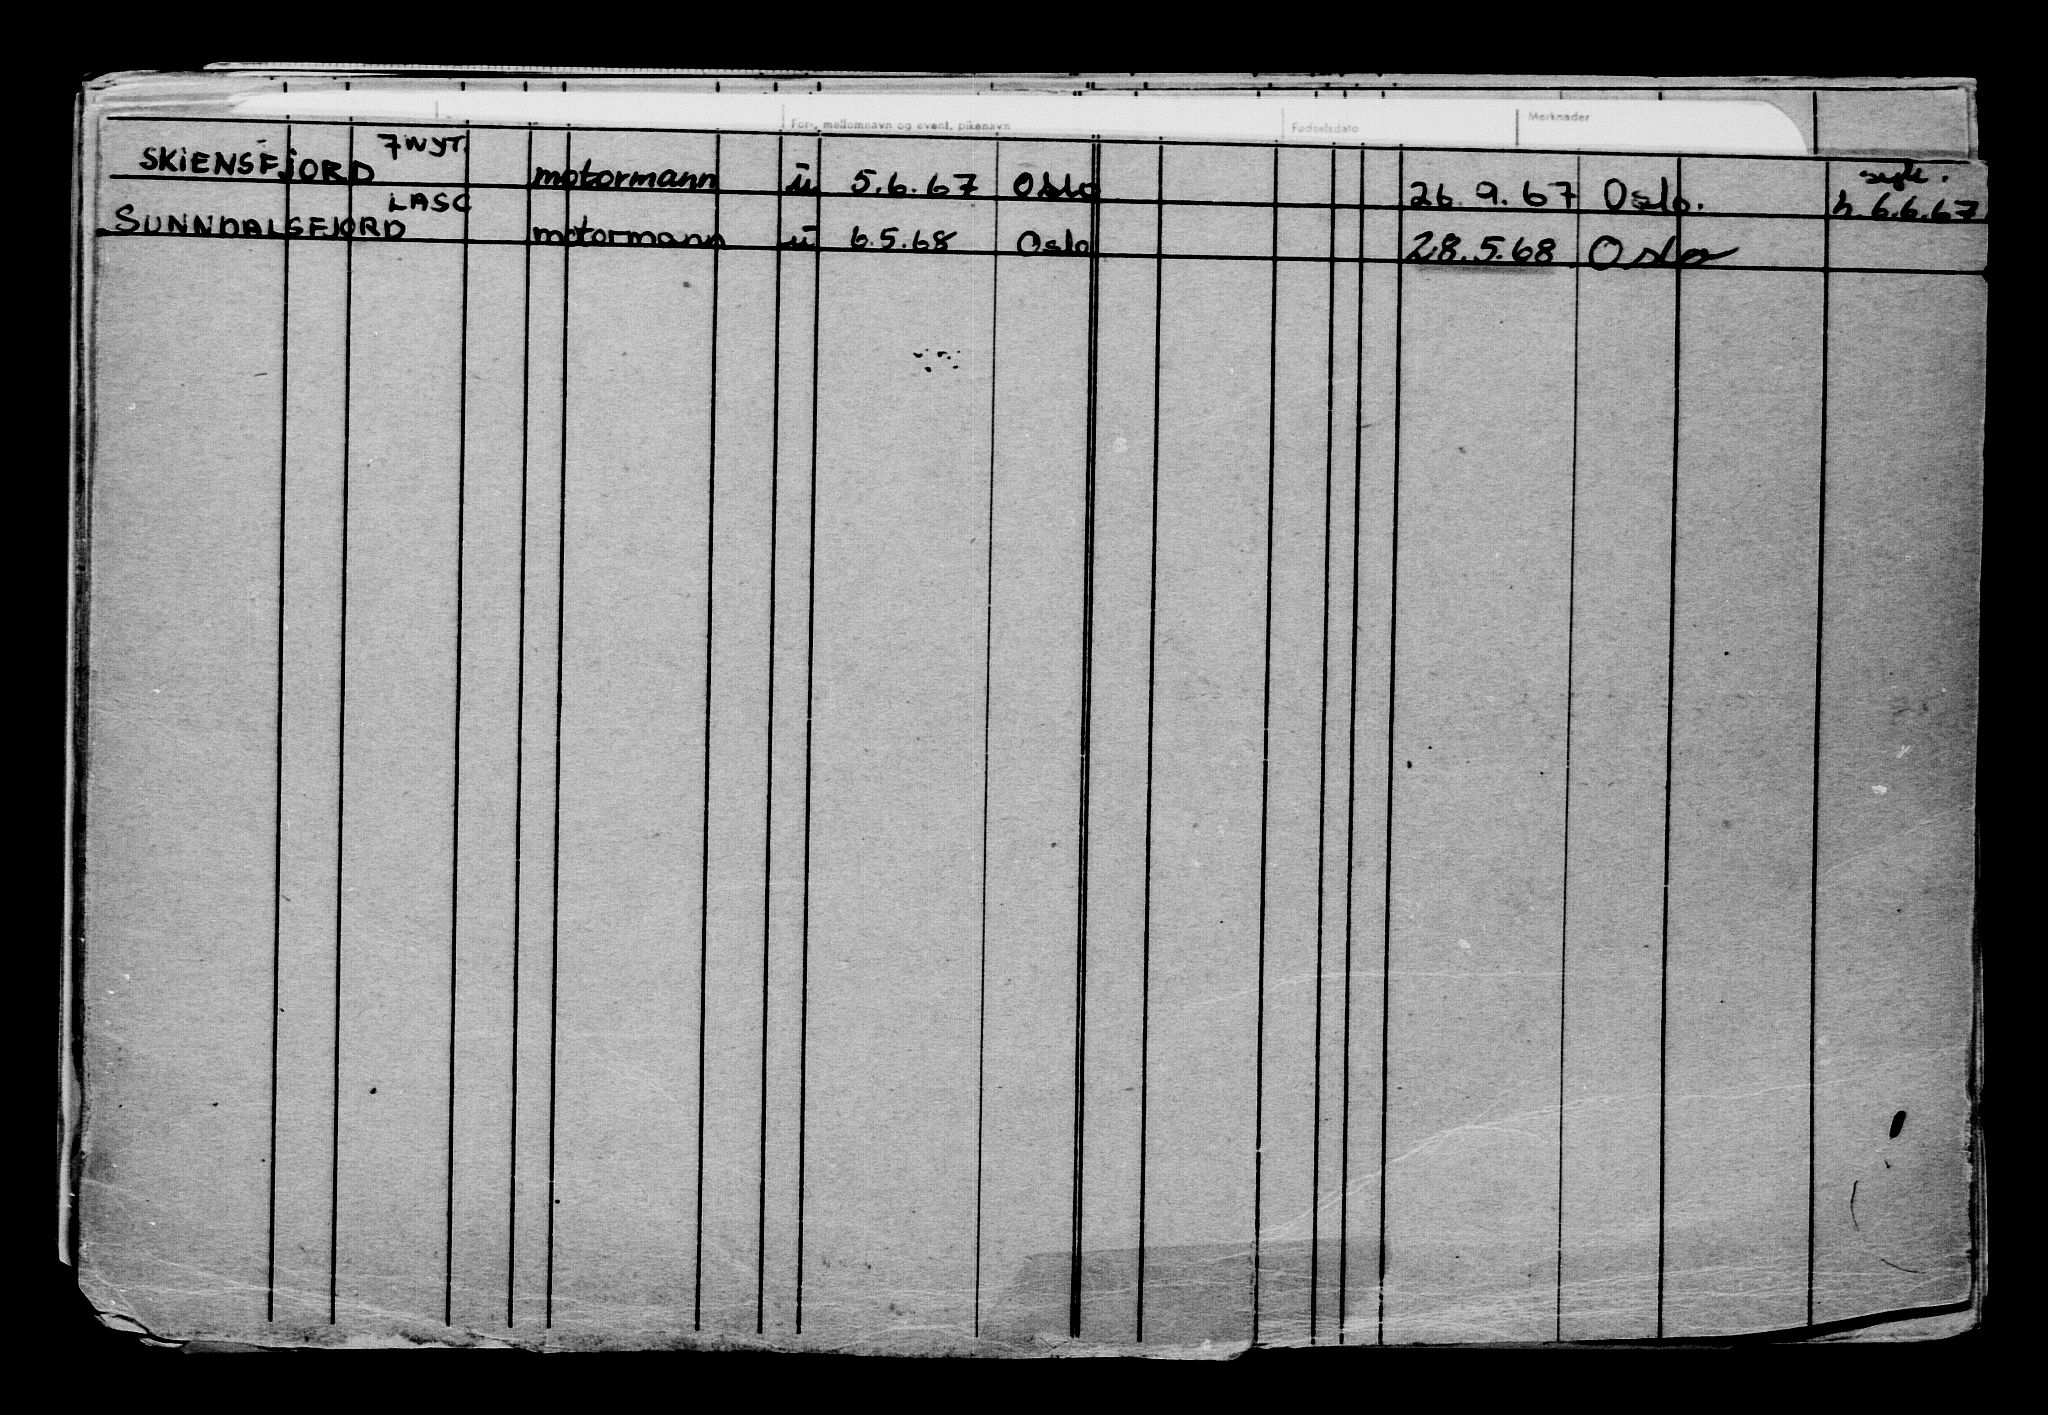 For-, mellomnavn og event. pikenavn Fødselsdato Merknader
SKiENSFJORD 7WYT motormann ū 5.6.67 Oslo 26.9.67 Oslo. h. 6.6.67
SUNNDALSFJORD LASC motormann ū 6.5.68 Oslo 28.5.68 Oslo